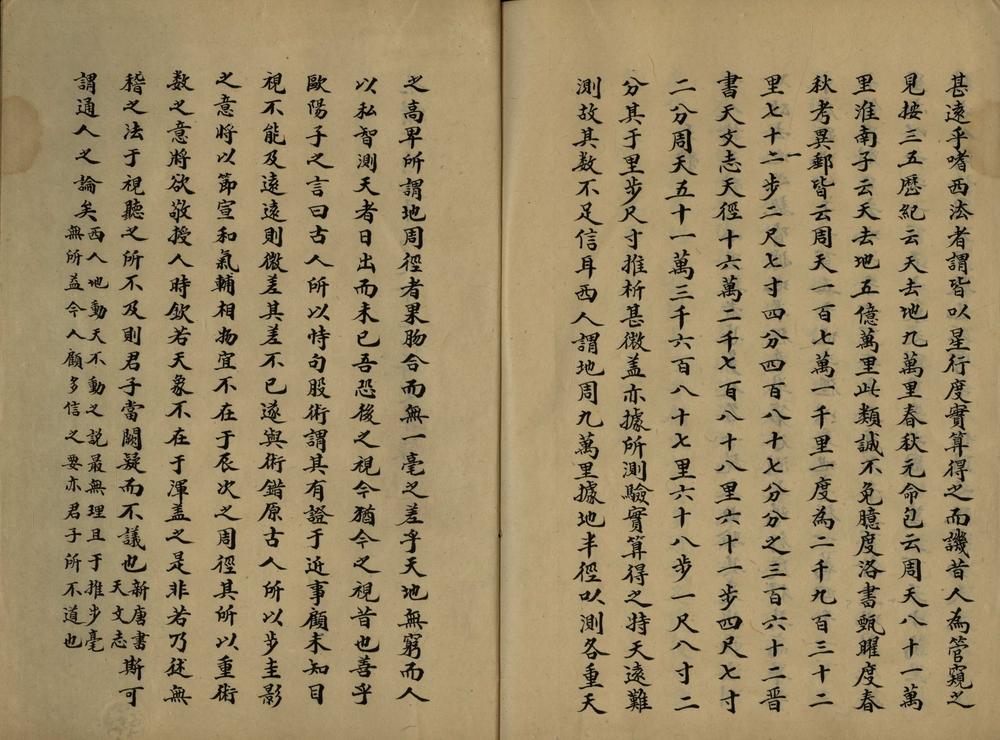 甚遠乎嗜西法者謂皆以星行度實算得之而譏昔人為管窺之
見按三五歷紀云天去地九萬里春秋元命包云周天八十一萬
里淮南子云天去地五億萬里此類誠不免臆度洛書甄曜度春
秋考異郵皆云周天一百七萬一千里一度為二千九百三十二
里七十一步二尺七寸四分四百八十七分分之三百六十二晋
書天文志天徑十六萬二千七百八十八里六十一步四尺七寸
二分周天五十一萬三千六百八十七里六十八步一尺八寸二
分其于里步尺寸推析甚微盖亦據所測驗實算得之特天遠難
測故其数不足信耳西人謂地周九萬里據地半徑以測各重天
之高卑所謂地周徑者果脗合而無一毫之差乎天地無窮而人
以私智測天者日出而未已吾恐後之視今猶今之視昔也善乎
歐陽子之言曰古人所以恃句股術謂其有證于近事顧未知目
視不能及遠遠則微差其差不已遂與術錯原古人所以步圭影
之意將以節宣和氣輔相物宜不在于辰次之周徑其所以重術
数之意將欲敬授人時欽若天象不在于渾盖之是非若乃述無
稽之法于視聽之所不及則君子當闕疑而不議也新唐書天文志斯可
謂通人之論矣西人地動天不動之説最無理且于推步毫無所益今人顧多信之要亦君子所不道也